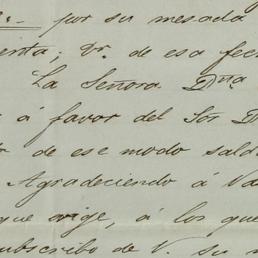 por su mesada
enta; Dr. de esa fec
La Señora Dña
á favor del Sor D
de ese modo sald
Agradeciendo á Va
que exige, á los que
ubscribo de V. su